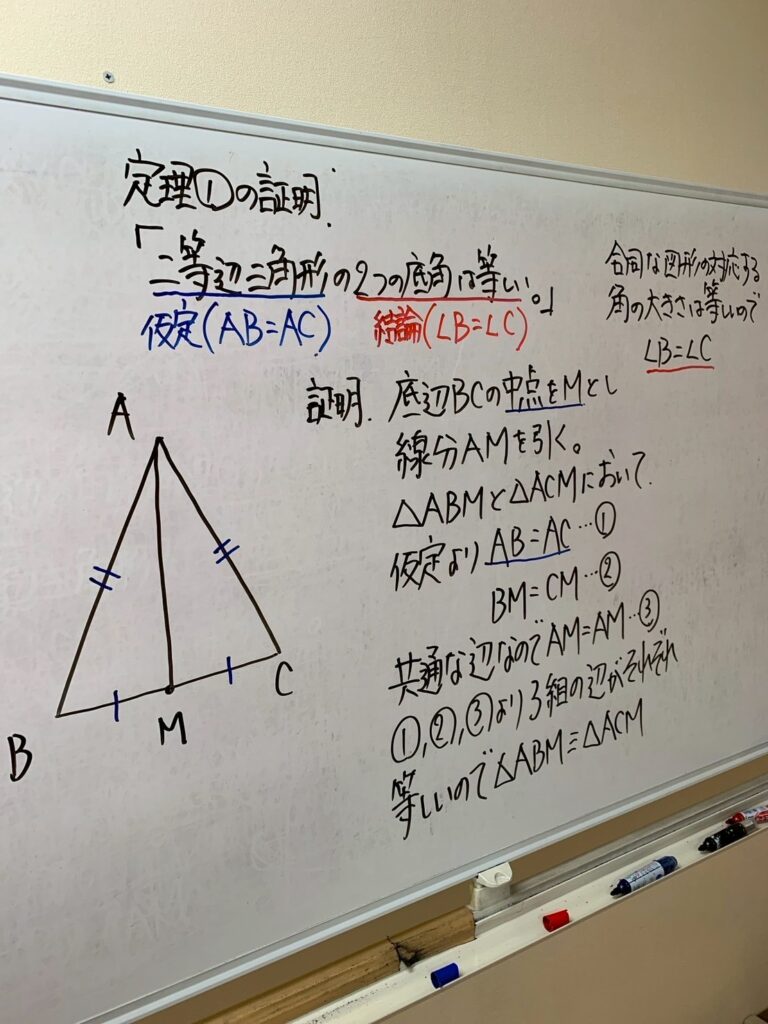 定理①の証明.
「二等辺三角形の2つの底角は等しい。」
仮定(AB=AC) 結論(∠B=∠C)
証明. 底辺BCの中点をMとし
線分AMを引く。
△ABMと△ACMにおいて
仮定より AB=AC…①
BM=CM…②
共通な辺なのでAM=AM…③
①,②,③より3組の辺がそれぞれ
等しいので△ABM≡△ACM
合同な図形の対応する
角の大きさは等しいので
∠B=∠C
A
B
M
C